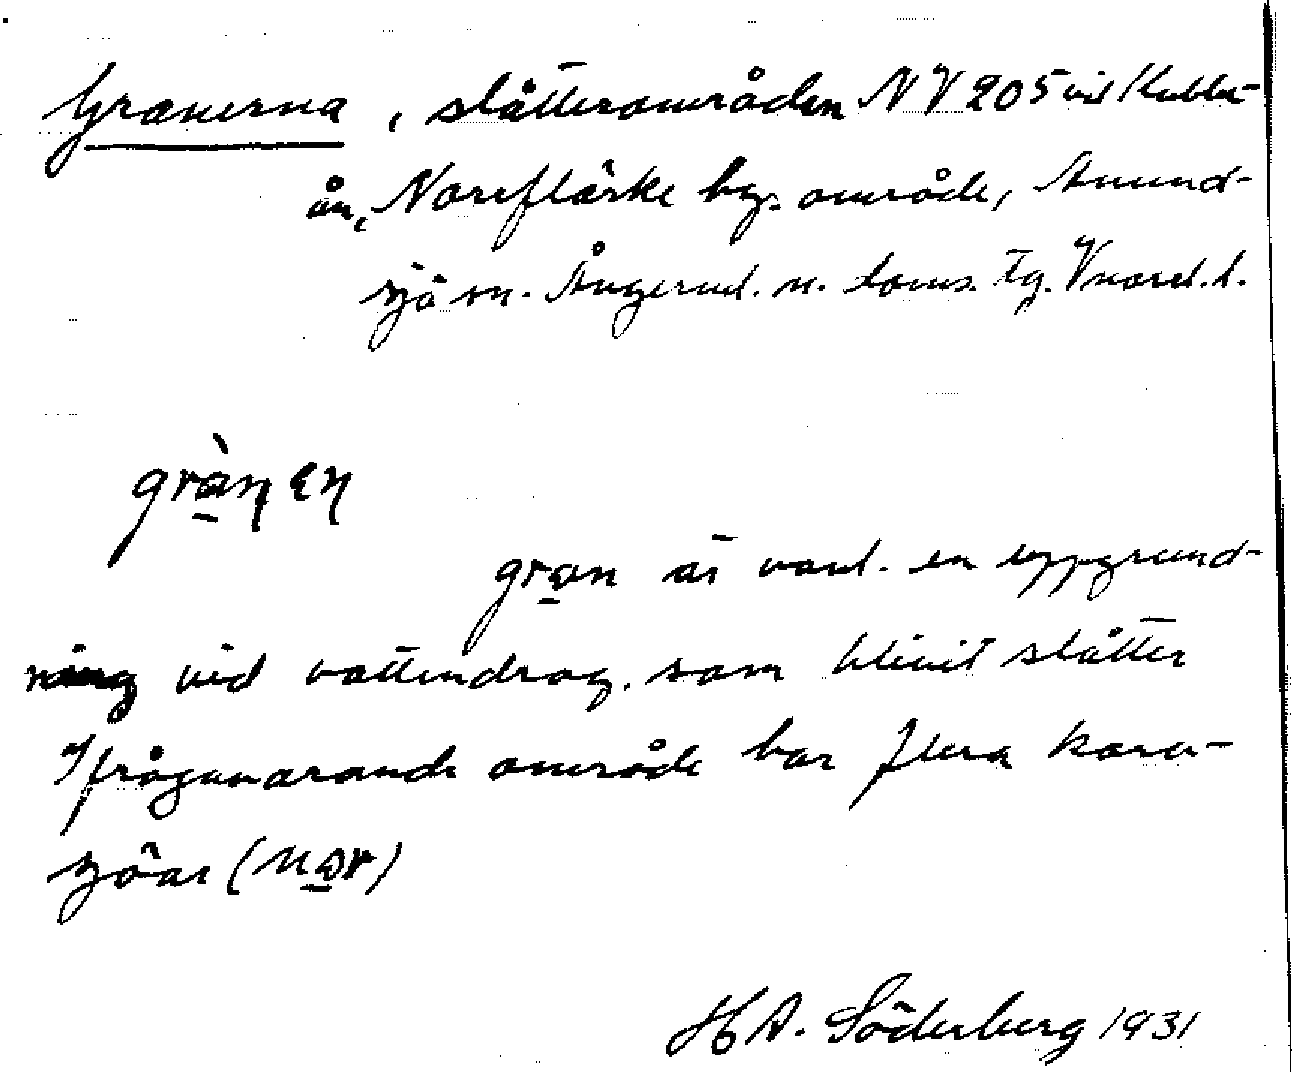 Granerna, slåtterområden NV 205 vid Kubbe-
ån, Norrflärke by. område, Anund-
sjö sn. Ångerml. n. doms. Tg. Vnorrl. l.
grànen
gran är vanl. en uppgrund-
ning vid vattendrag. som blivit slåtter
Ifrågavarande område har flera korv-
sjöar (nor)
H A. Söderberg 1931